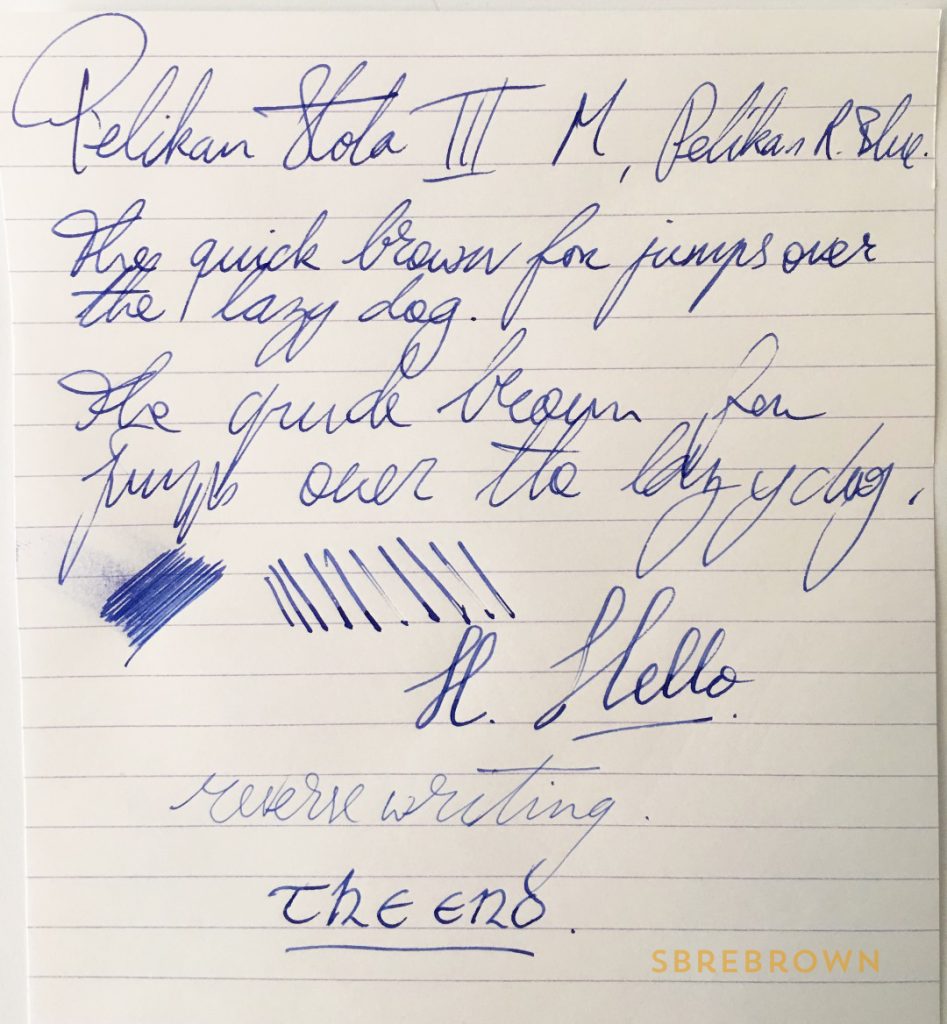 Pelikan Stola III M, Pelikan R. Blue.
The quick brown fox jumps over
the lazy dog.
The quick brown fox
jumps over the lazy dog.
H. Hello.
reverse writing.
THE END.
SBREBROWN